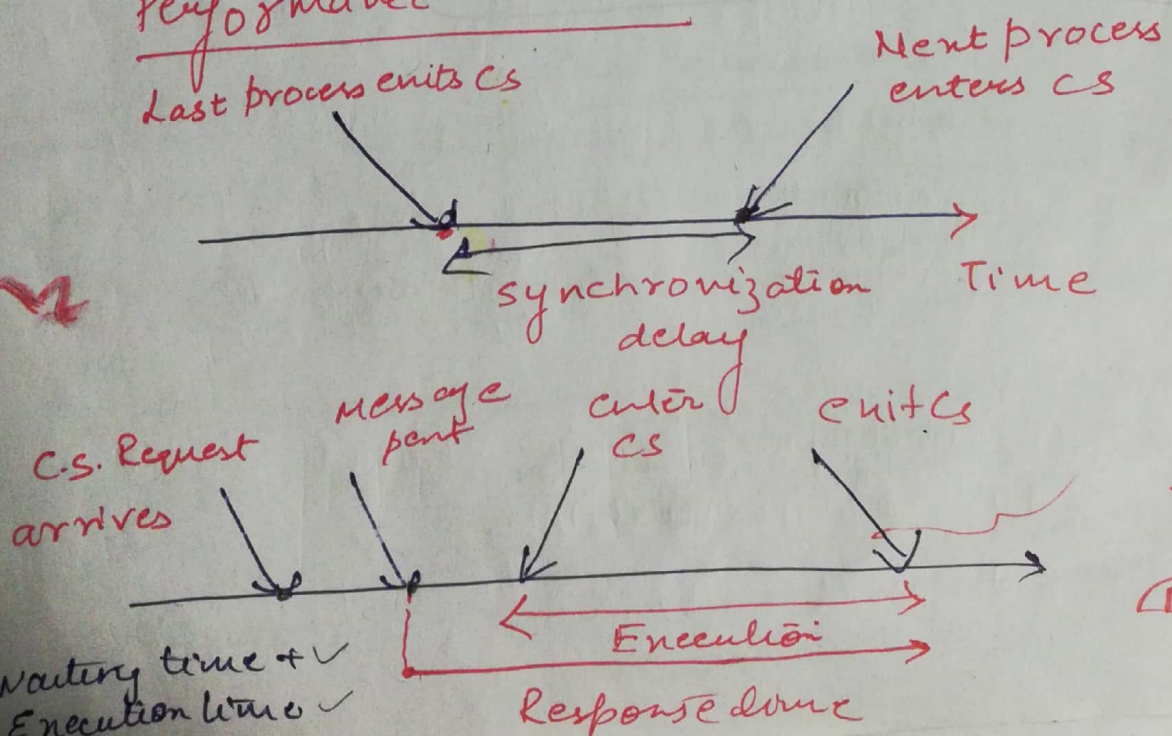 Performance
Last process exits CS
Next process
enters CS
synchronization
delay
Time
C.S. Request
arrives
Message
sent
enter
CS
exit CS
Execution
Response time
Waiting time + ✓
Execution time ✓